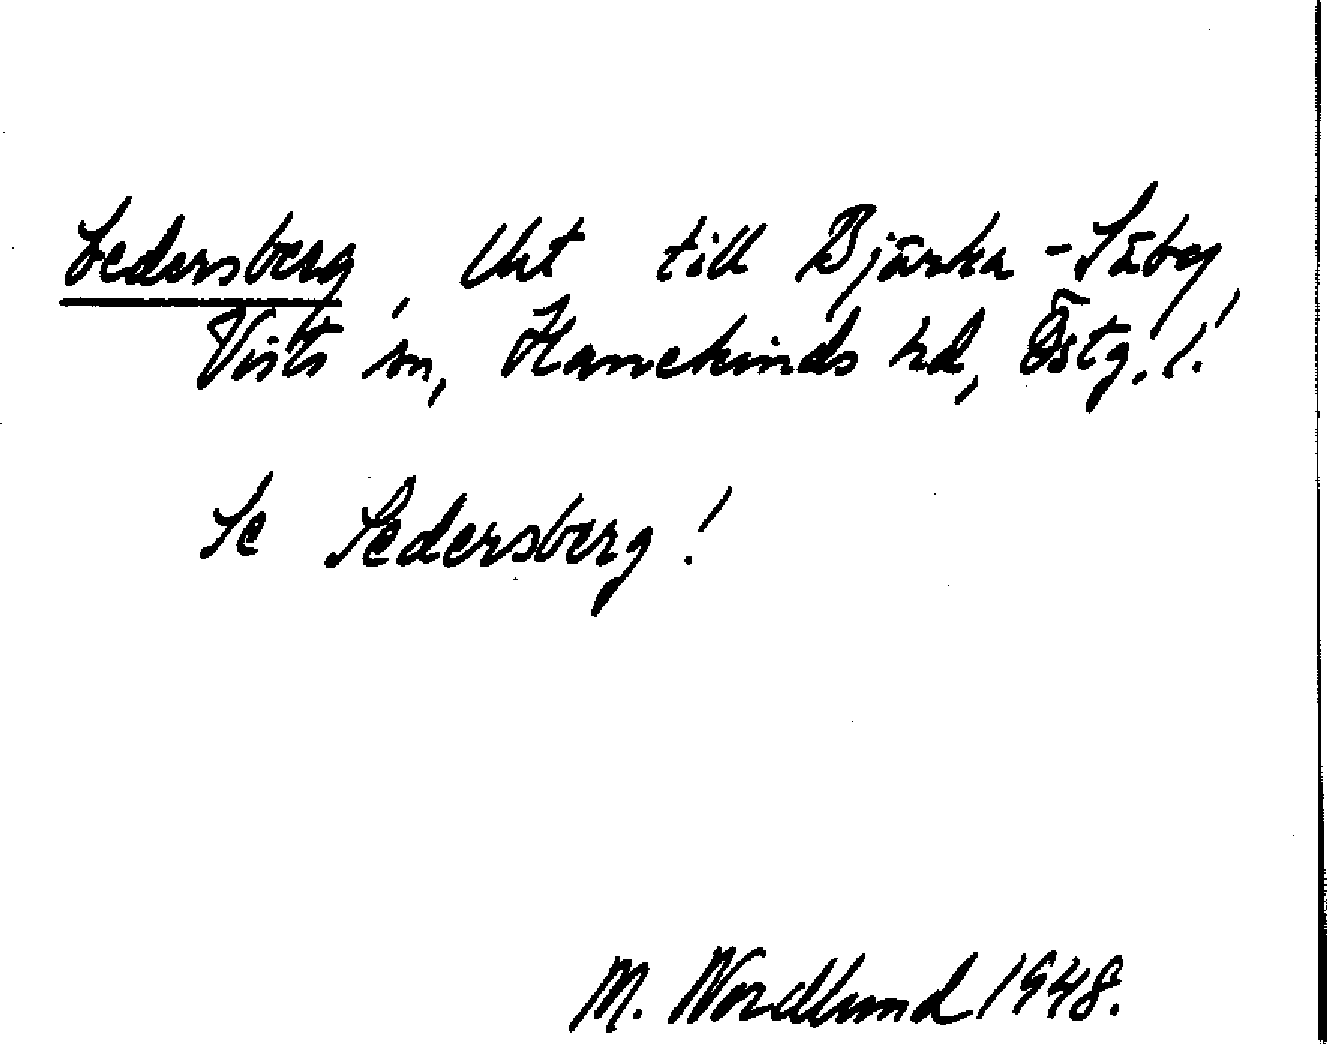 Sedersberg, Utt till Bjärka-Säby,
Vists sn, Hanekinds hd, Östg. l.
Se Sedersberg!
M. Nordlund 1948.